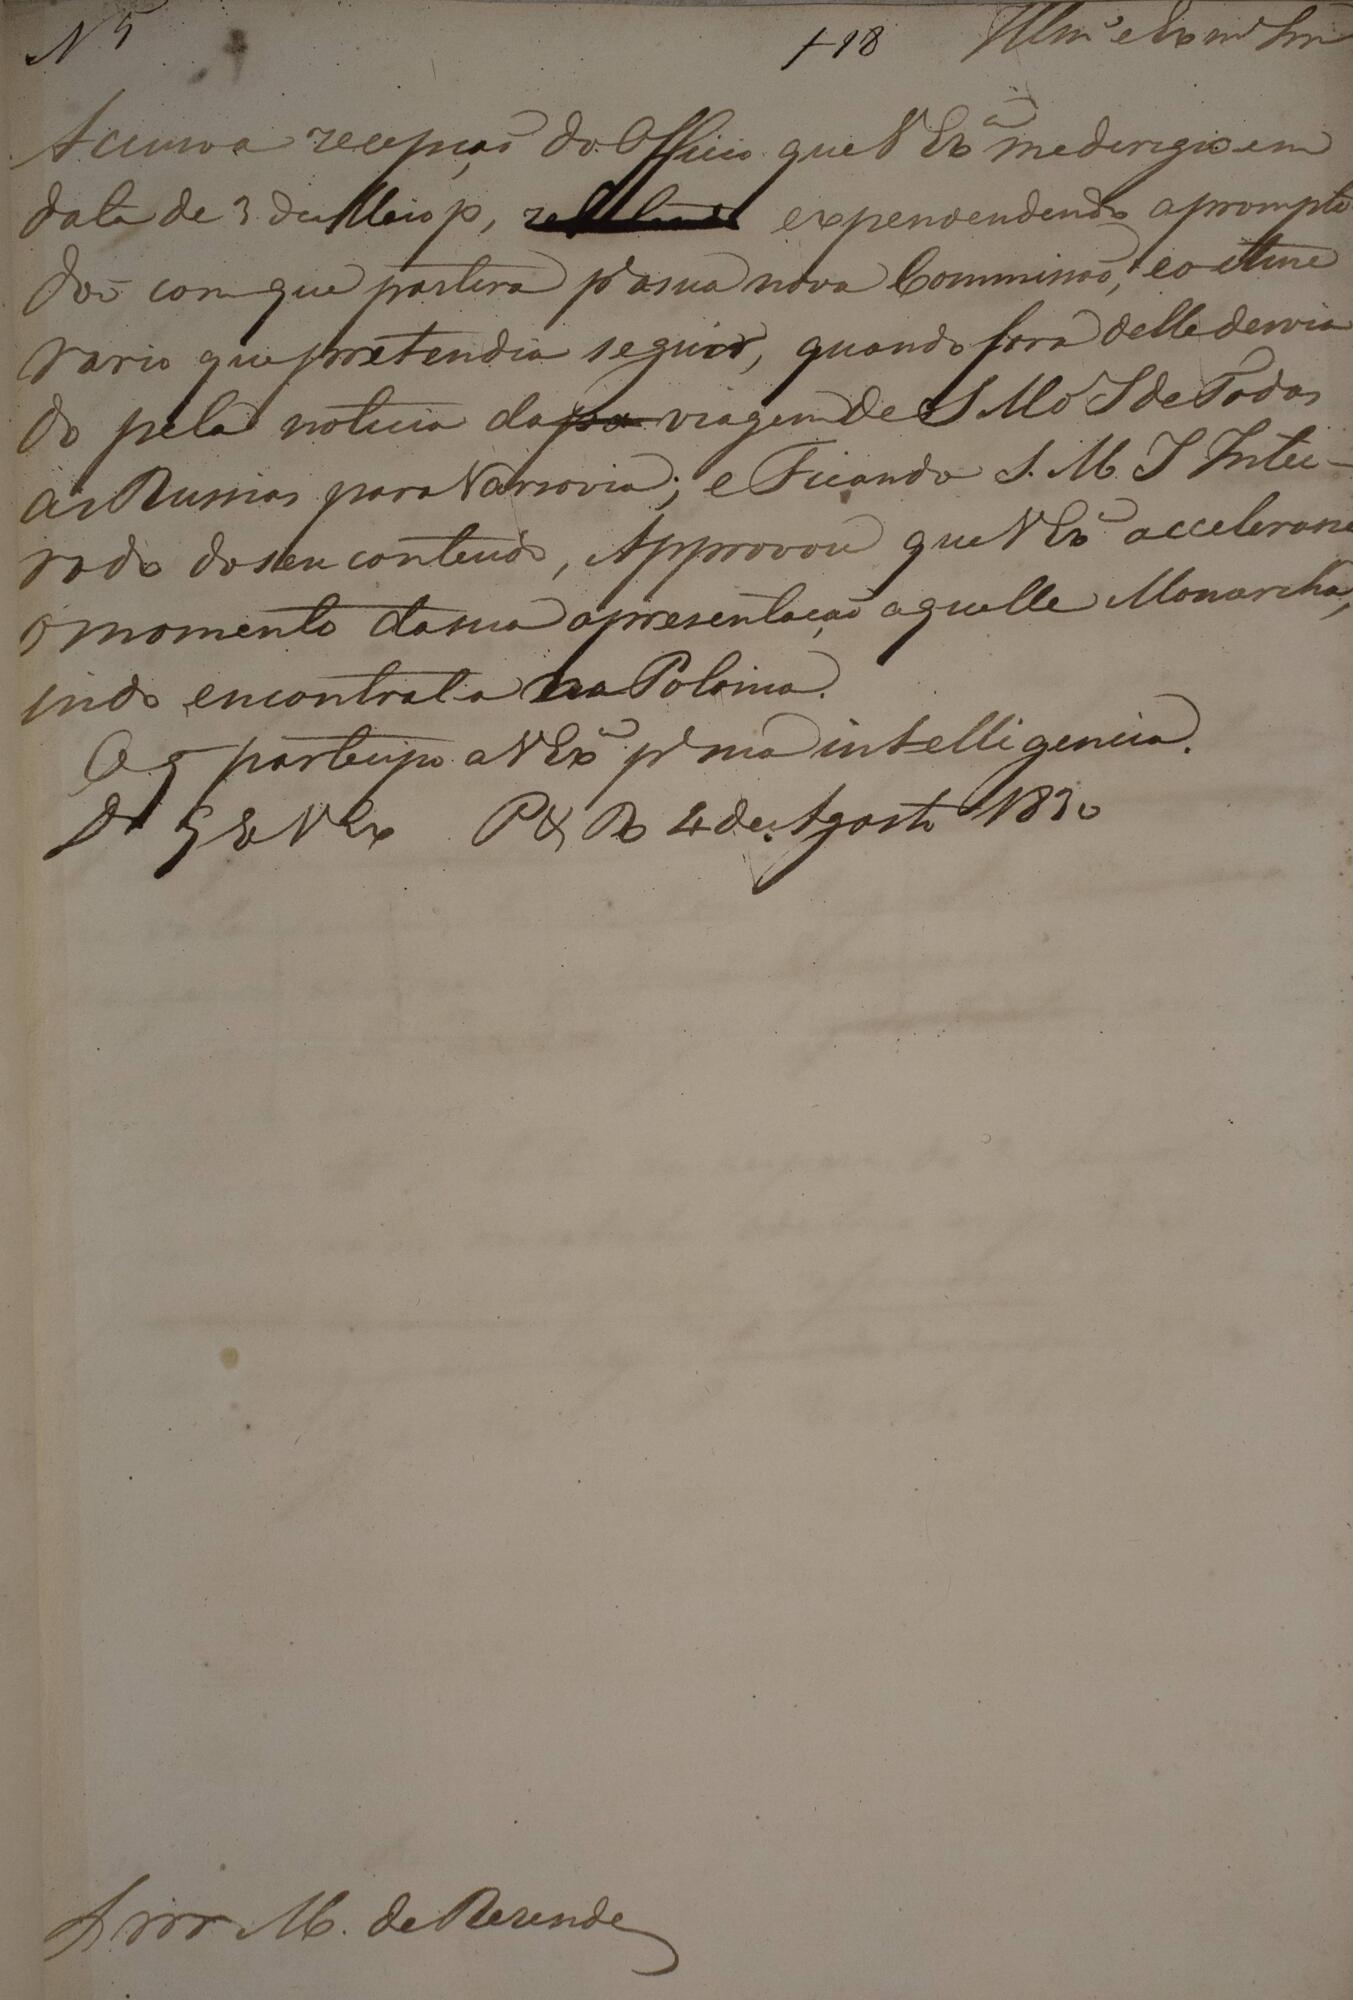 N 5 +18 Illmº e Exmº Snr
Accuso a recepção do Officio que V Exª me dirigio em
data de 3 de Maio p, expendendo a prompti
dão com que partira pª a sua nova Commissão, e o itine
rario que pretendia seguir, quando fora delle desvia
do pela noticia da viagem de S M o I de Todas
as Russias para Varsovia; e Ficando S. M. I Intei-
rado do seu conteudo, Approvou que V Exª accelerasse
o momento da sua apresentação aquelle Monarcha,
indo encontral-o na Polonia.
O q participo a V Exª pª sua intelligencia.
Ds G E V Ex P R 4 de Agosto 1830
Snr M. de Rezende